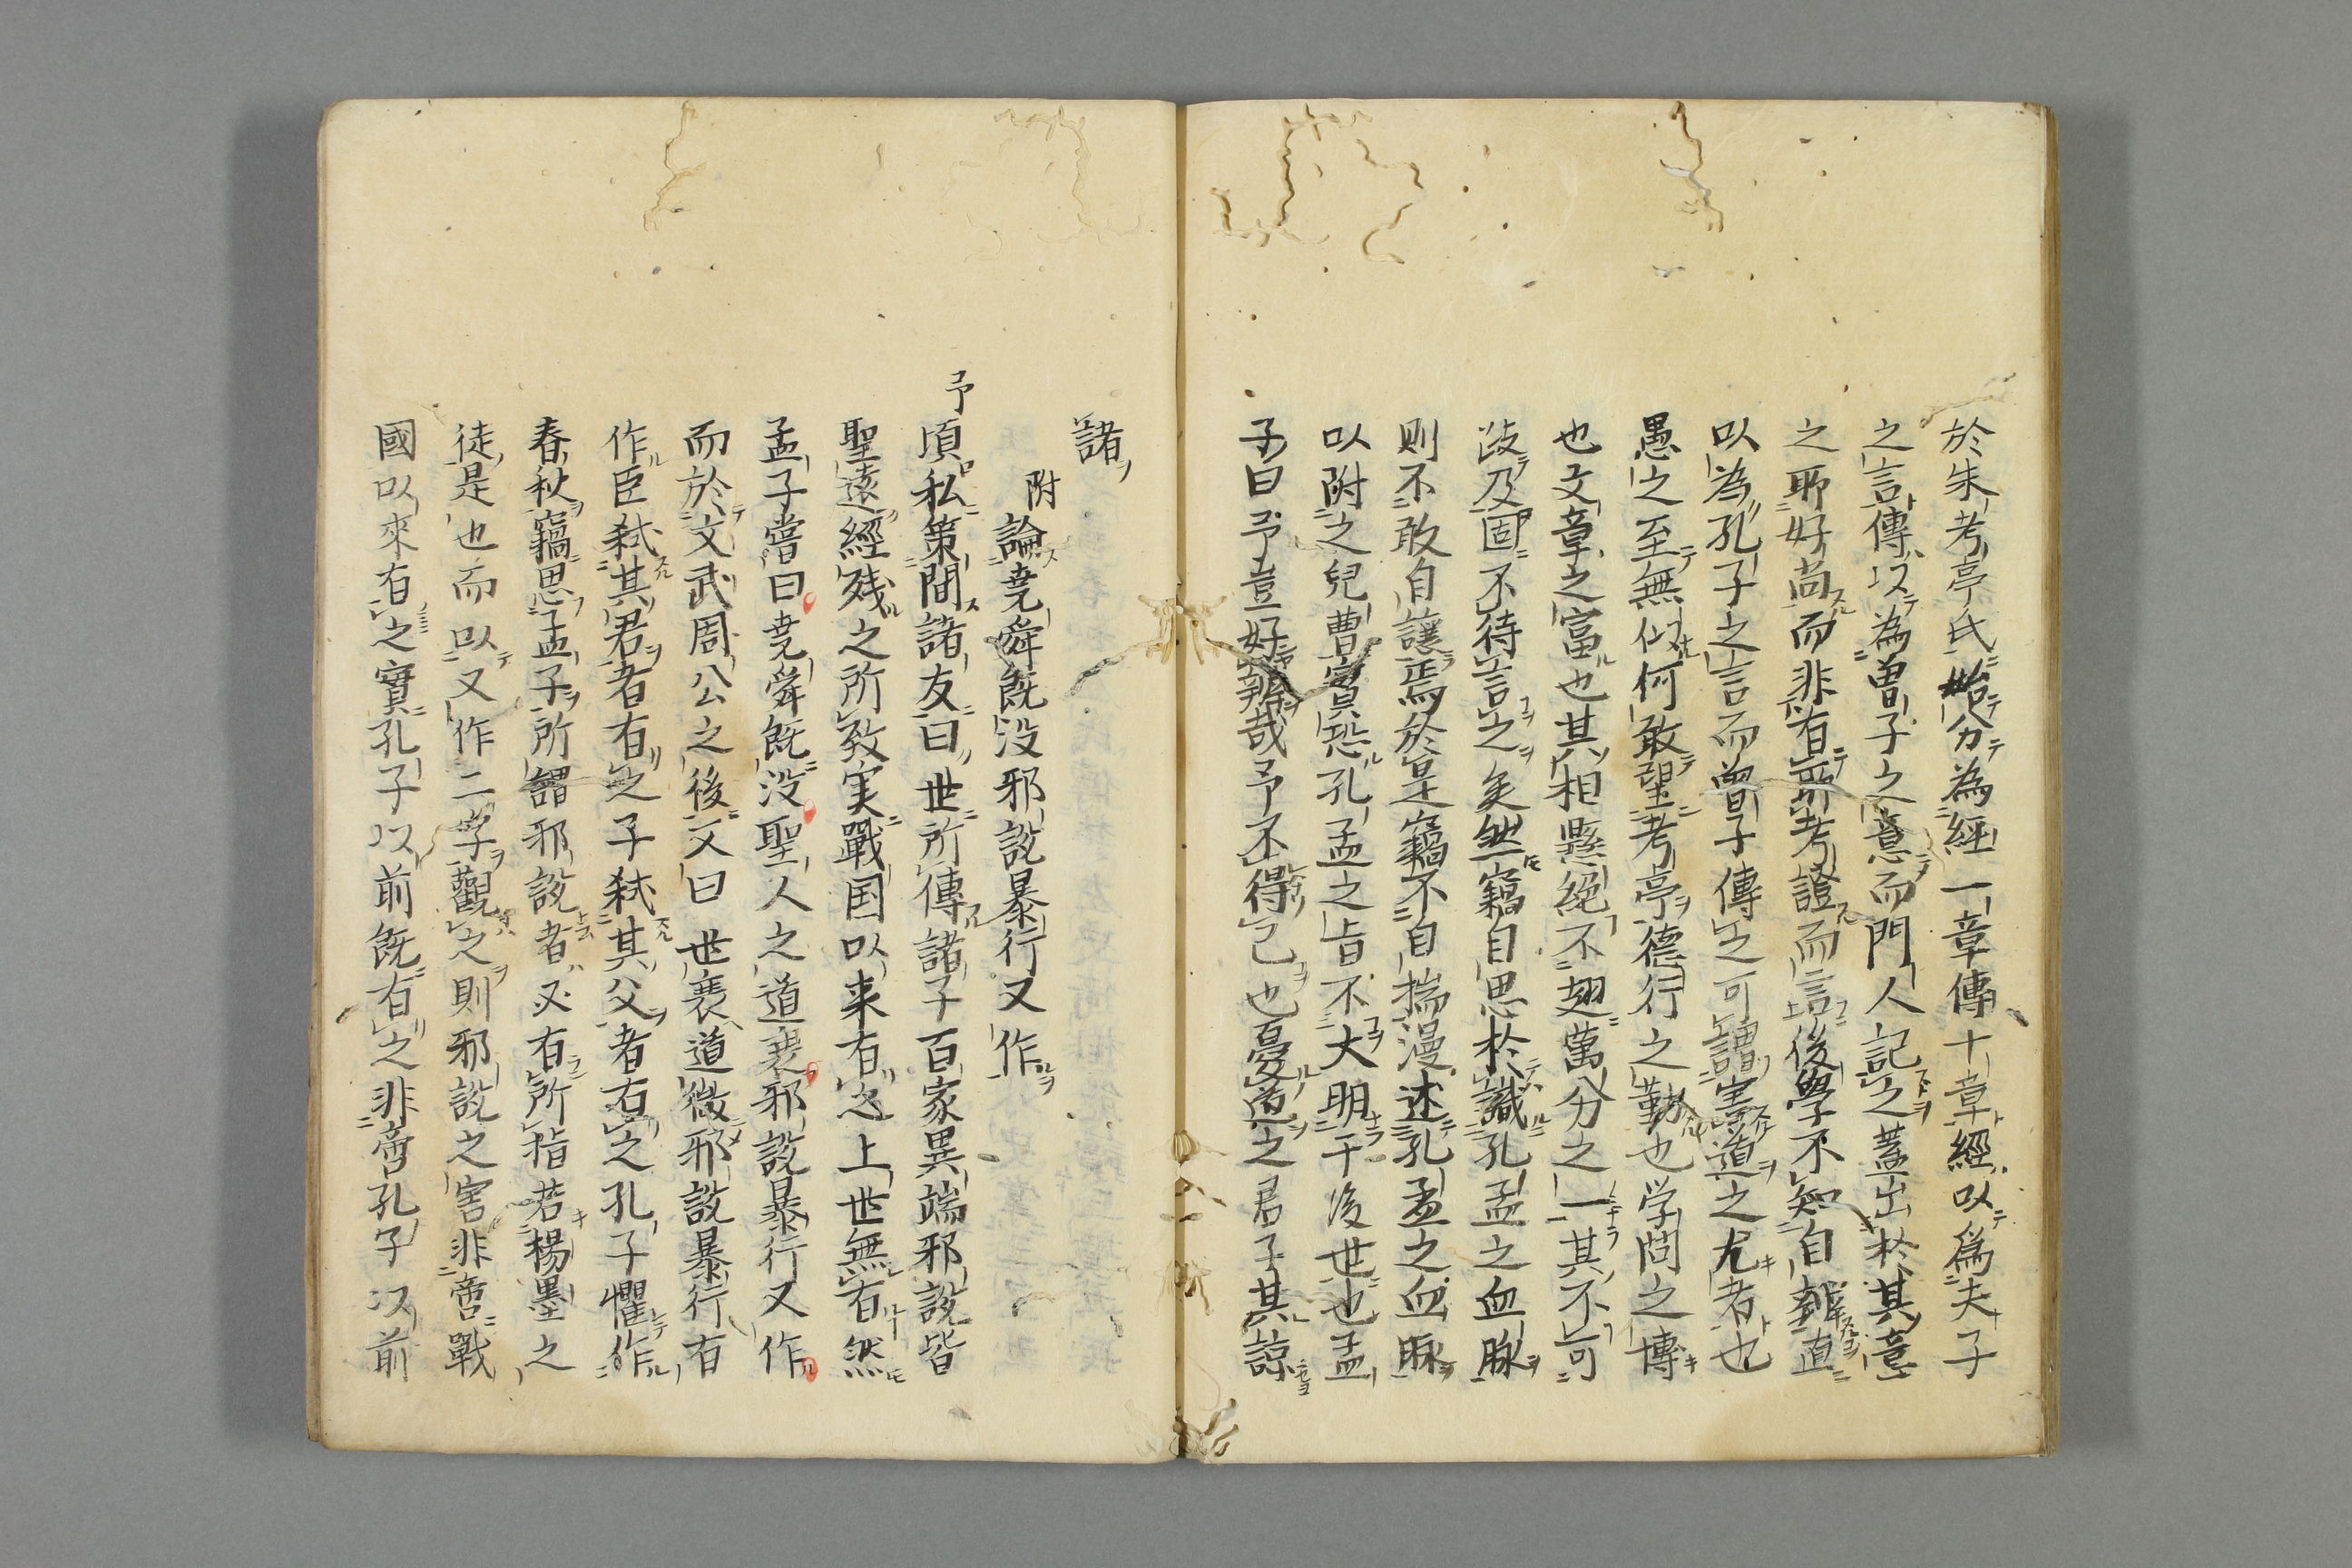 於朱考亭氏始分為經一章傳十章經以爲夫子
之言傳以為曽子之意而門人記之蓋出於其意
之所好尚而非有所考證而言後學不知自辨直
以為孔子之言而曽子傳之可謂害道之尤者也
愚之至無似何敢望考亭德行之勤也学問之博
也文章之富也其相懸絕不翅萬分之一其不可
跂及固不待言之矣然竊自思於識孔孟之血脉
則不敢自讓焉於是竊不自揣漫述孔孟之血脉
以附之兒曹實恐孔孟之旨不大明于後世也孟
子曰予豈好辨哉予不得已也憂道之君子其諒
諸
附論堯舜既没邪說暴行又作
予頃私策問諸友曰世所傳諸子百家異端邪說皆
聖遠經殘之所致実戰国以来有之上世無有然
孟子嘗曰堯舜既没聖人之道衰邪說暴行又作
而於文武周公之後又曰世衰道微邪說暴行有
作臣弑其君者有之子弑其父者有之孔子懼作
春秋竊思孟子所謂邪說者必有所指若楊墨之
徒是也而以又作二字觀之則邪說之害非啻戰
國以來有之實孔子以前既有之非啻孔子以前